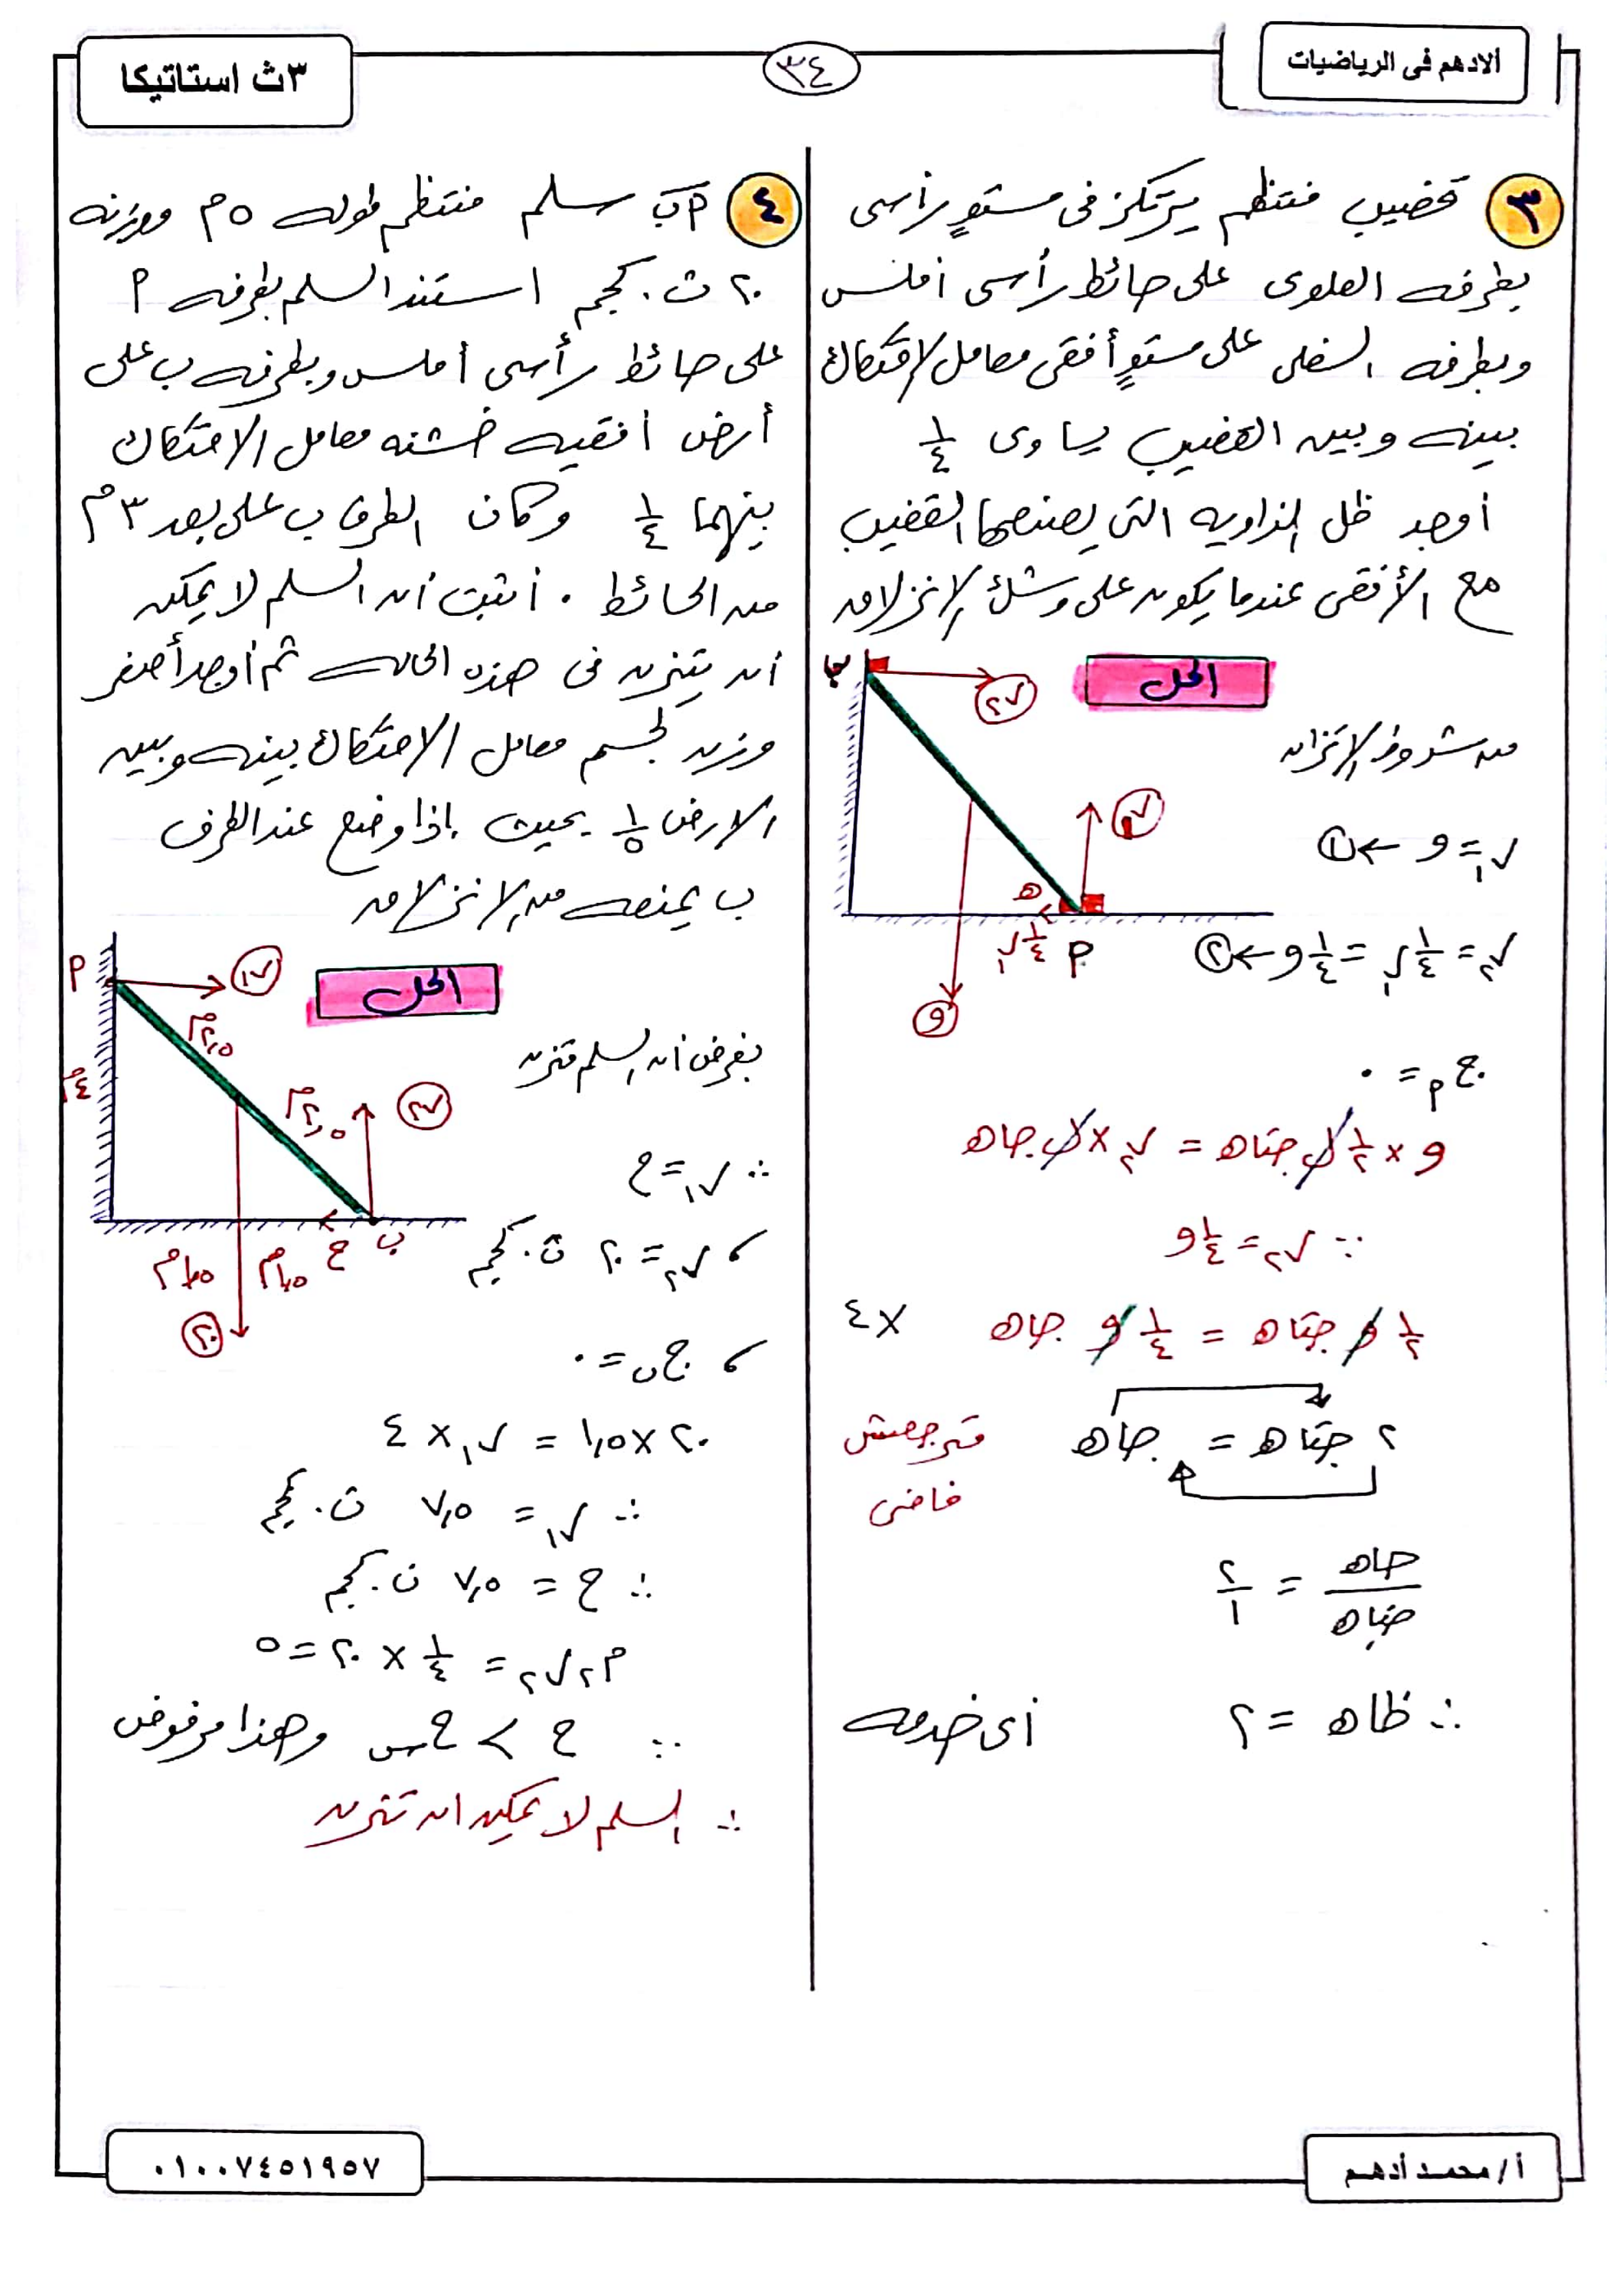 الادهم فى الرياضيات
٣٤
٣ث استاتيكا
٣ قضيب منتظم يرتكز فى مستوٍ رأسى
بطرفه العلوى على حائط رأسى أملس
وبطرفه السفلى على مستوٍ أفقى معامل الإحتكاك
بينه وبين القضيب يساوى ١/٤
أوجد ظل الزاويه التى يصنعها القضيب
مع الأفقى عندما يكون على وشك الإنزلاق
الحل
ب
ر٢
ر١
هـ
١/٤ ر١
م
و
من شروط الإتزان
ر١ = و ← ١
ر٢ = ١/٤ ر١ = ١/٤ و ← ٢
ج م = ٠
و × ١/٢ ل جتاهـ = ر٢ × ل جاهـ
∵ ر٢ = ١/٤ و
١/٢ و جتاهـ = ١/٤ و جاهـ × ٤
٢ جتاهـ = جاهـ
مترجعش فاضى
جاهـ / جتاهـ = ٢/١
∴ ظاهـ = ٢
أى خدمه
٤ م ب سلم منتظم طوله ٥م ووزنه
٢٠ ث.كجم استند السلم بطرفه م
على حائط رأسى أملس وبطرفه ب على
أرض أفقيه خشنه معامل الاحتكاك
بينهما ١/٤ وكان الطرف ب على بعد ٣م
من الحائط . أثبت أن السلم لا يمكن
أن يتزن فى هذه الحاله ثم أوجد أصغر
وزن لجسم معامل الاحتكاك بينه وبين
الارض ١/٥ بحيث إذا وضع عند الطرف
ب يمنعه من الانزلاق
الحل
م
ر١
٢,٥م
٤م
٢,٥م
ر٢
ب
ح
١,٥م
١,٥م
٢٠
بفرض أن السلم متزن
∴ ر١ = ح
، ر٢ = ٢٠ ث.كجم
، ج ب = ٠
٢٠ × ١,٥ = ر١ × ٤
∴ ر١ = ٧,٥ ث.كجم
∴ ح = ٧,٥ ث.كجم
م٢ ر٢ = ١/٤ × ٢٠ = ٥
∵ ح > ح س وهذا مرفوض
∴ السلم لا يمكن ان تتزن
أ/ محمد أدهم
٠١٠٠٧٤٥١٩٥٧